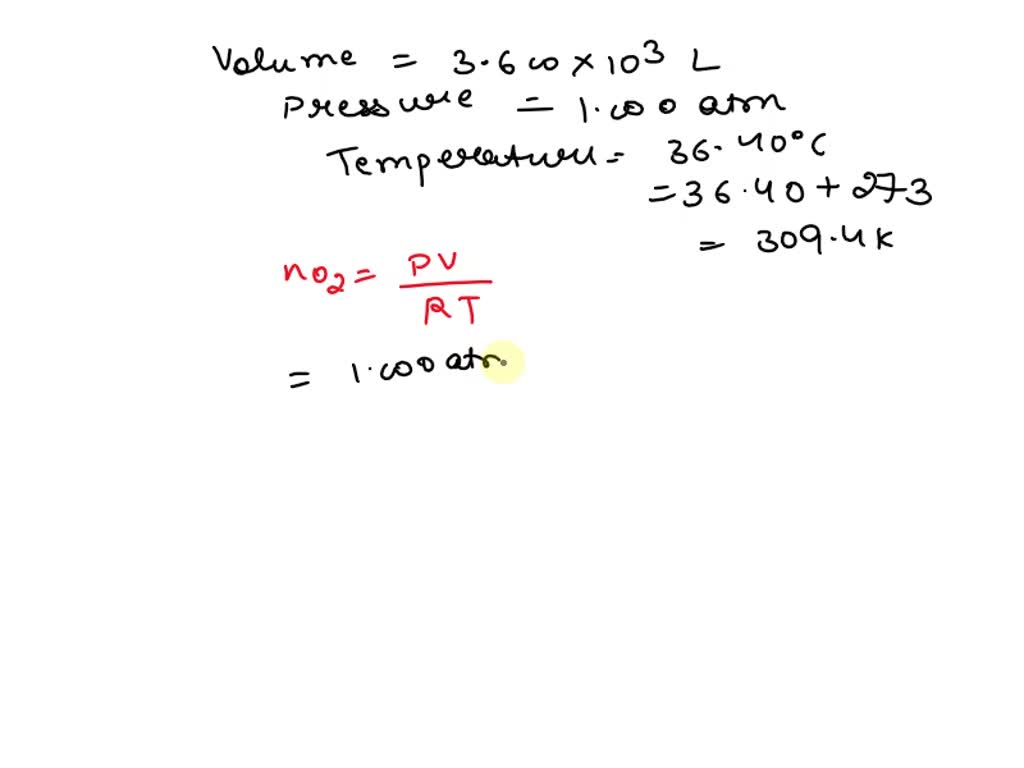 Volume = 3.600 × 10³ L
Pressure = 1.000 atm
Temperature = 36.40°C
= 36.40 + 273
= 309.4 K
nO₂ = PV / RT
= 1.000 atm